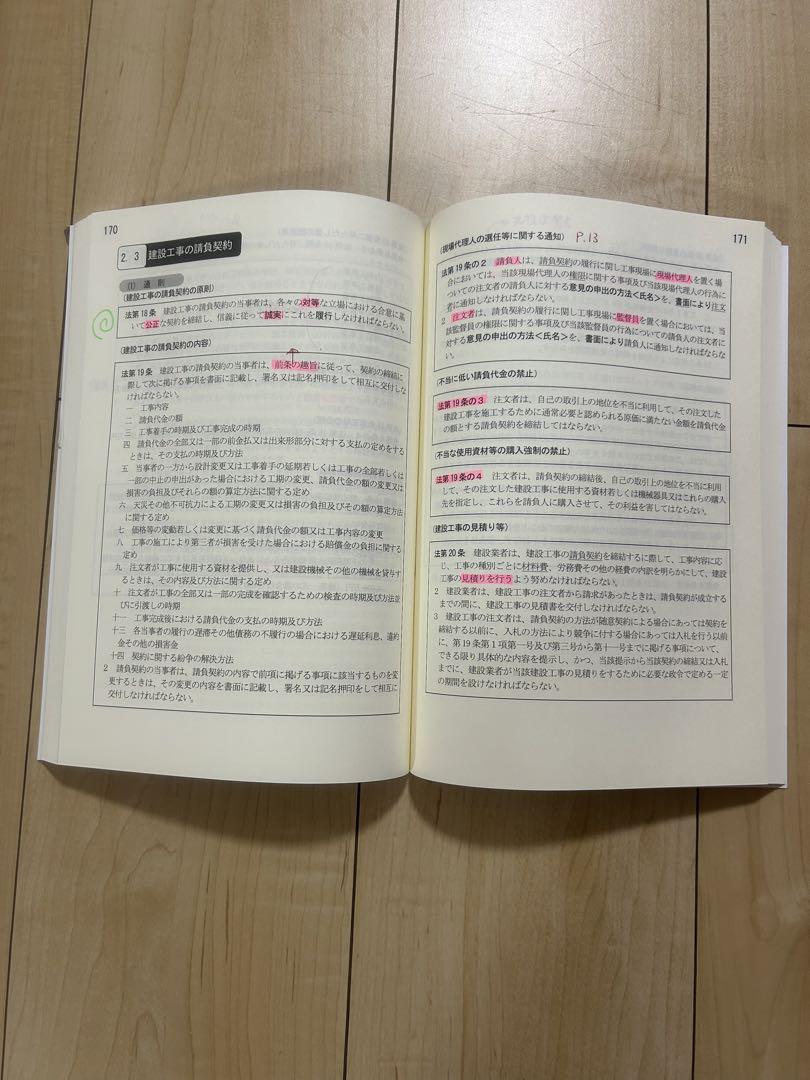 170
2.3 建設工事の請負契約
(1) 通則
(建設工事の請負契約の原則)
法第18条 建設工事の請負契約の当事者は、各々の対等な立場における合意に基
いて公正な契約を締結し、信義に従って誠実にこれを履行しなければならない。
(建設工事の請負契約の内容)
法第19条 建設工事の請負契約の当事者は、前条の趣旨に従って、契約の締結に
際して次に掲げる事項を書面に記載し、署名又は記名押印をして相互に交付しな
ければならない。
一 工事内容
二 請負代金の額
三 工事着手の時期及び工事完成の時期
四 請負代金の全部又は一部の前金払又は出来形部分に対する支払の定めをする
ときは、その支払の時期及び方法
五 当事者の一方から設計変更又は工事着手の延期若しくは工事の全部若しくは
一部の中止の申出があった場合における工期の変更、請負代金の額の変更又は
損害の負担及びそれらの額の算定方法に関する定め
六 天災その他不可抗力による工期の変更又は損害の負担及びその額の算定方法
に関する定め
七 価格等の変動若しくは変更に基づく請負代金の額又は工事内容の変更
八 工事の施工により第三者が損害を受けた場合における賠償金の負担に関する
定め
九 注文者が工事に使用する資材を提供し、又は建設機械その他の機械を貸与す
るときは、その内容及び方法に関する定め
十 注文者が工事の全部又は一部の完成を確認するための検査の時期及び方法並
びに引渡しの時期
十一 工事完成後における請負代金の支払の時期及び方法
十三 各当事者の履行の遅滞その他債務の不履行の場合における遅延利息、違約
金その他の損害金
十四 契約に関する紛争の解決方法
2 請負契約の当事者は、請負契約の内容で前項に掲げる事項に該当するものを変
更するときは、その変更の内容を書面に記載し、署名又は記名押印をして相互に
交付しなければならない。
(現場代理人の選任等に関する通知) P.13
171
法第19条の2 請負人は、請負契約の履行に関し工事現場に現場代理人を置く場
合においては、当該現場代理人の権限に関する事項及び当該現場代理人の行為に
ついての注文者の請負人に対する意見の申出の方法<氏名>を、書面により注文
者に通知しなければならない。
2 注文者は、請負契約の履行に関し工事現場に監督員を置く場合においては、当
該監督員の権限に関する事項及び当該監督員の行為についての請負人の注文者に
対する意見の申出の方法<氏名>を、書面により請負人に通知しなければならな
い。
(不当に低い請負代金の禁止)
法第19条の3 注文者は、自己の取引上の地位を不当に利用して、その注文した
建設工事を施工するために通常必要と認められる原価に満たない金額を請負代金
の額とする請負契約を締結してはならない。
(不当な使用資材等の購入強制の禁止)
法第19条の4 注文者は、請負契約の締結後、自己の取引上の地位を不当に利用
して、その注文した建設工事に使用する資材若しくは機械器具又はこれらの購入
先を指定し、これらを請負人に購入させて、その利益を害してはならない。
(建設工事の見積り等)
法第20条 建設業者は、建設工事の請負契約を締結するに際して、工事内容に応
じ、工事の種別ごとに材料費、労務費その他の経費の内訳を明らかにして、建設
工事の見積りを行うよう努めなければならない。
2 建設業者は、建設工事の注文者から請求があったときは、請負契約が成立する
までの間に、建設工事の見積書を交付しなければならない。
3 建設工事の注文者は、請負契約の方法が随意契約による場合にあっては契約を
締結する以前に、入札の方法により競争に付する場合にあっては入札を行う以前
に、第19条第1項第一号及び第三号から第十一号までに掲げる事項について、
できる限り具体的な内容を提示し、かつ、当該提示から当該契約の締結又は入札
までに、建設業者が当該建設工事の見積りをするために必要な政令で定める一定
の期間を設けなければならない。